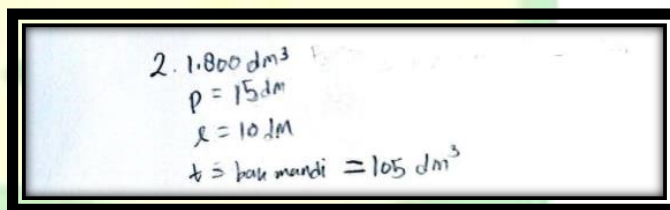 2. 1.800 dm³
p = 15 dm
l = 10 dm
t = bak mandi = 105 dm³